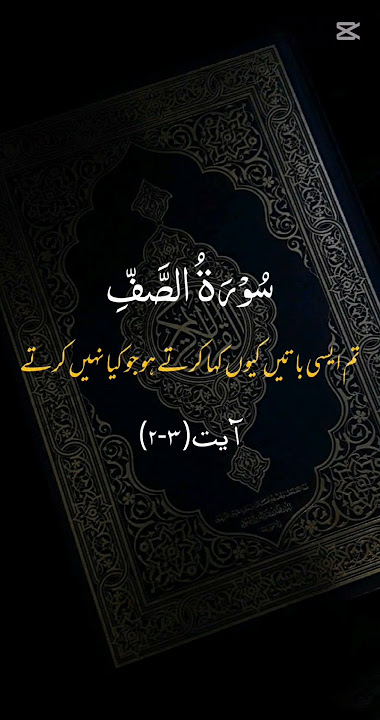 سُوْرَةُ الصَّفِّ
تم ایسی باتیں کیوں کہا کرتے ہو جو کیا نہیں کرتے
آیت(۳-۲)